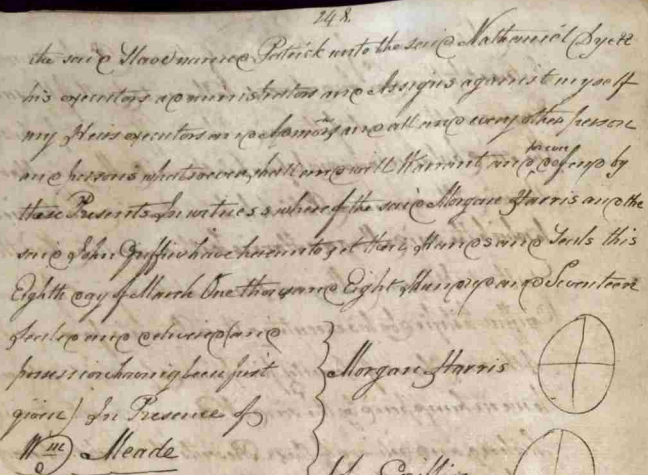 248.
the said Slave named Patrick unto the said Nathaniel Dyett
his executors administrators and Assigns against myself
my Heirs executors and Admors and all and every other person
and persons whatsoever shall and will Warrant and defend by
these Presents In witness whereof the said Morgan Harris and the
said John Griffin have hereunto set their Hands and Seals this
Eighth day of March One thousand Eight Hundred and Seventeen
Sealed and delivered (and
possession having been first
given) In Presence of
Morgan Harris
Wm Meade